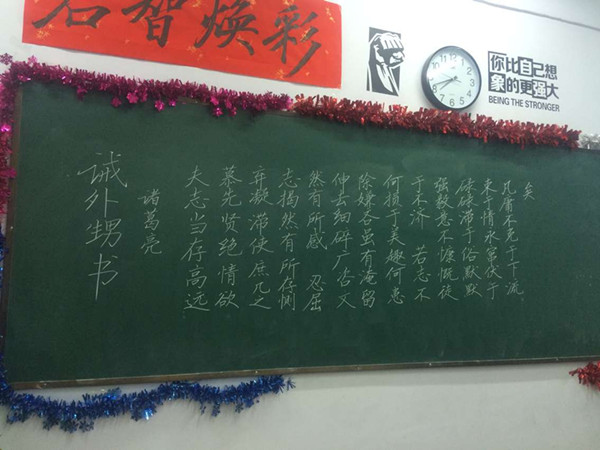 智焕彩
你比自己想
象的更强大
BEING THE STRONGER
诫外甥书
诸葛亮
夫志当存高远
慕先贤绝情欲
弃凝滞使庶几之
志揭然有所存恻
然有所感 忍屈
伸去细碎广咨
除嫌吝虽有淹留
何损于美趣何患
于不济 若志不
强毅意不慷慨徒
碌碌滞于俗默默
束于情永窜伏于
凡庸不免于下流
矣